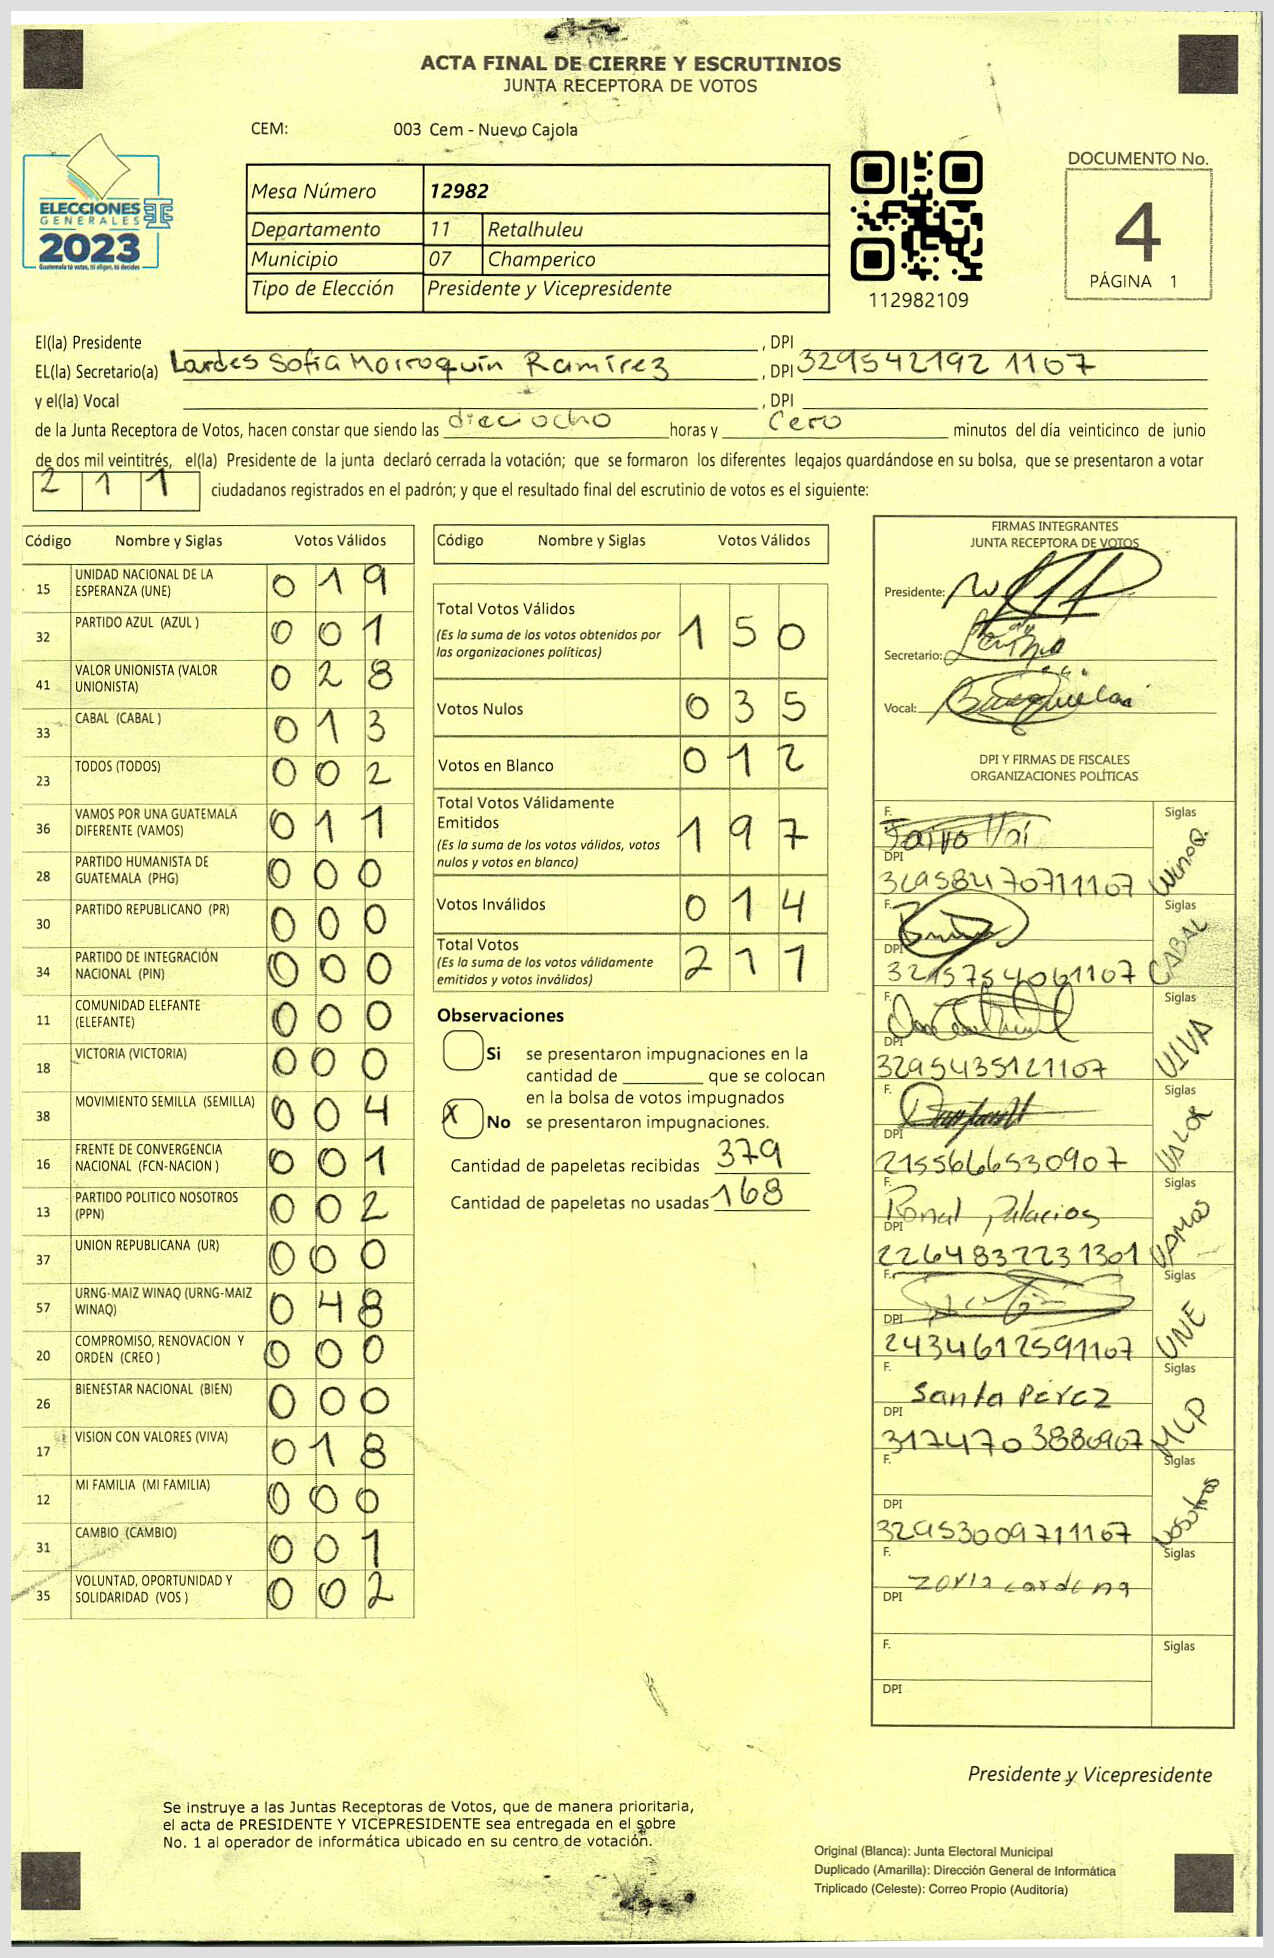 ACTA FINAL DE CIERRE Y ESCRUTINIOS
JUNTA RECEPTORA DE VOTOS
CEM: 003 Cem - Nuevo Cajola
ELECCIONES
GENERALES
2023
Guatemala tú votas, tú eliges, tú decides
Mesa Número 12982
Departamento 11 Retalhuleu
Municipio 07 Champerico
Tipo de Elección Presidente y Vicepresidente
112982109
DOCUMENTO No.
4
PÁGINA 1
El(la) Presidente , DPI
EL(la) Secretario(a) Lardes Sofia Morroquín Ramírez , DPI 329542192 1107
y el(la) Vocal , DPI
de la Junta Receptora de Votos, hacen constar que siendo las dieciocho horas y Cero minutos del día veinticinco de junio
de dos mil veintitrés, el(la) Presidente de la junta declaró cerrada la votación; que se formaron los diferentes legajos guardándose en su bolsa, que se presentaron a votar
2 1 1 ciudadanos registrados en el padrón; y que el resultado final del escrutinio de votos es el siguiente:
Código Nombre y Siglas Votos Válidos
15 UNIDAD NACIONAL DE LA ESPERANZA (UNE) 0 1 9
32 PARTIDO AZUL (AZUL ) 0 0 1
41 VALOR UNIONISTA (VALOR UNIONISTA) 0 2 8
33 CABAL (CABAL ) 0 1 3
23 TODOS (TODOS) 0 0 2
36 VAMOS POR UNA GUATEMALA DIFERENTE (VAMOS) 0 1 1
28 PARTIDO HUMANISTA DE GUATEMALA (PHG) 0 0 0
30 PARTIDO REPUBLICANO (PR) 0 0 0
34 PARTIDO DE INTEGRACIÓN NACIONAL (PIN) 0 0 0
11 COMUNIDAD ELEFANTE (ELEFANTE) 0 0 0
18 VICTORIA (VICTORIA) 0 0 0
38 MOVIMIENTO SEMILLA (SEMILLA) 0 0 4
16 FRENTE DE CONVERGENCIA NACIONAL (FCN-NACION ) 0 0 1
13 PARTIDO POLITICO NOSOTROS (PPN) 0 0 2
37 UNION REPUBLICANA (UR) 0 0 0
57 URNG-MAIZ WINAQ (URNG-MAIZ WINAQ) 0 4 8
20 COMPROMISO, RENOVACION Y ORDEN (CREO ) 0 0 0
26 BIENESTAR NACIONAL (BIEN) 0 0 0
17 VISION CON VALORES (VIVA) 0 1 8
12 MI FAMILIA (MI FAMILIA) 0 0 0
31 CAMBIO (CAMBIO) 0 0 1
35 VOLUNTAD, OPORTUNIDAD Y SOLIDARIDAD (VOS ) 0 0 2
Código Nombre y Siglas Votos Válidos
Total Votos Válidos
(Es la suma de los votos obtenidos por
las organizaciones políticas) 1 5 0
Votos Nulos 0 3 5
Votos en Blanco 0 1 2
Total Votos Válidamente
Emitidos
(Es la suma de los votos válidos, votos
nulos y votos en blanco) 1 9 7
Votos Inválidos 0 1 4
Total Votos
(Es la suma de los votos válidamente
emitidos y votos inválidos) 2 1 1
Observaciones
Si se presentaron impugnaciones en la
cantidad de ________ que se colocan
en la bolsa de votos impugnados
X No se presentaron impugnaciones.
Cantidad de papeletas recibidas 379
Cantidad de papeletas no usadas 168
FIRMAS INTEGRANTES
JUNTA RECEPTORA DE VOTOS
Presidente:
Secretario:
Vocal:
DPI Y FIRMAS DE FISCALES
ORGANIZACIONES POLÍTICAS
F. Siglas
DPI
3295847071107 Winaq.
F. Siglas
DPI
3215754061107 CABAL
F. Siglas
DPI
3295435121107 VIVA
F. Siglas
DPI
2155666530907 VALOR
F. Ronal Palacios Siglas
DPI
2264832231301 VAMOS
F. Siglas
DPI
2434612591107 UNE
F. Santa Pérez Siglas
DPI
317470 3880907 MLP
F. Siglas
DPI
32953009711107 Nosotros
F. Siglas
DPI
F. Siglas
DPI
Presidente y Vicepresidente
Se instruye a las Juntas Receptoras de Votos, que de manera prioritaria,
el acta de PRESIDENTE Y VICEPRESIDENTE sea entregada en el sobre
No. 1 al operador de informática ubicado en su centro de votación.
Original (Blanca): Junta Electoral Municipal
Duplicado (Amarilla): Dirección General de Informática
Triplicado (Celeste): Correo Propio (Auditoría)